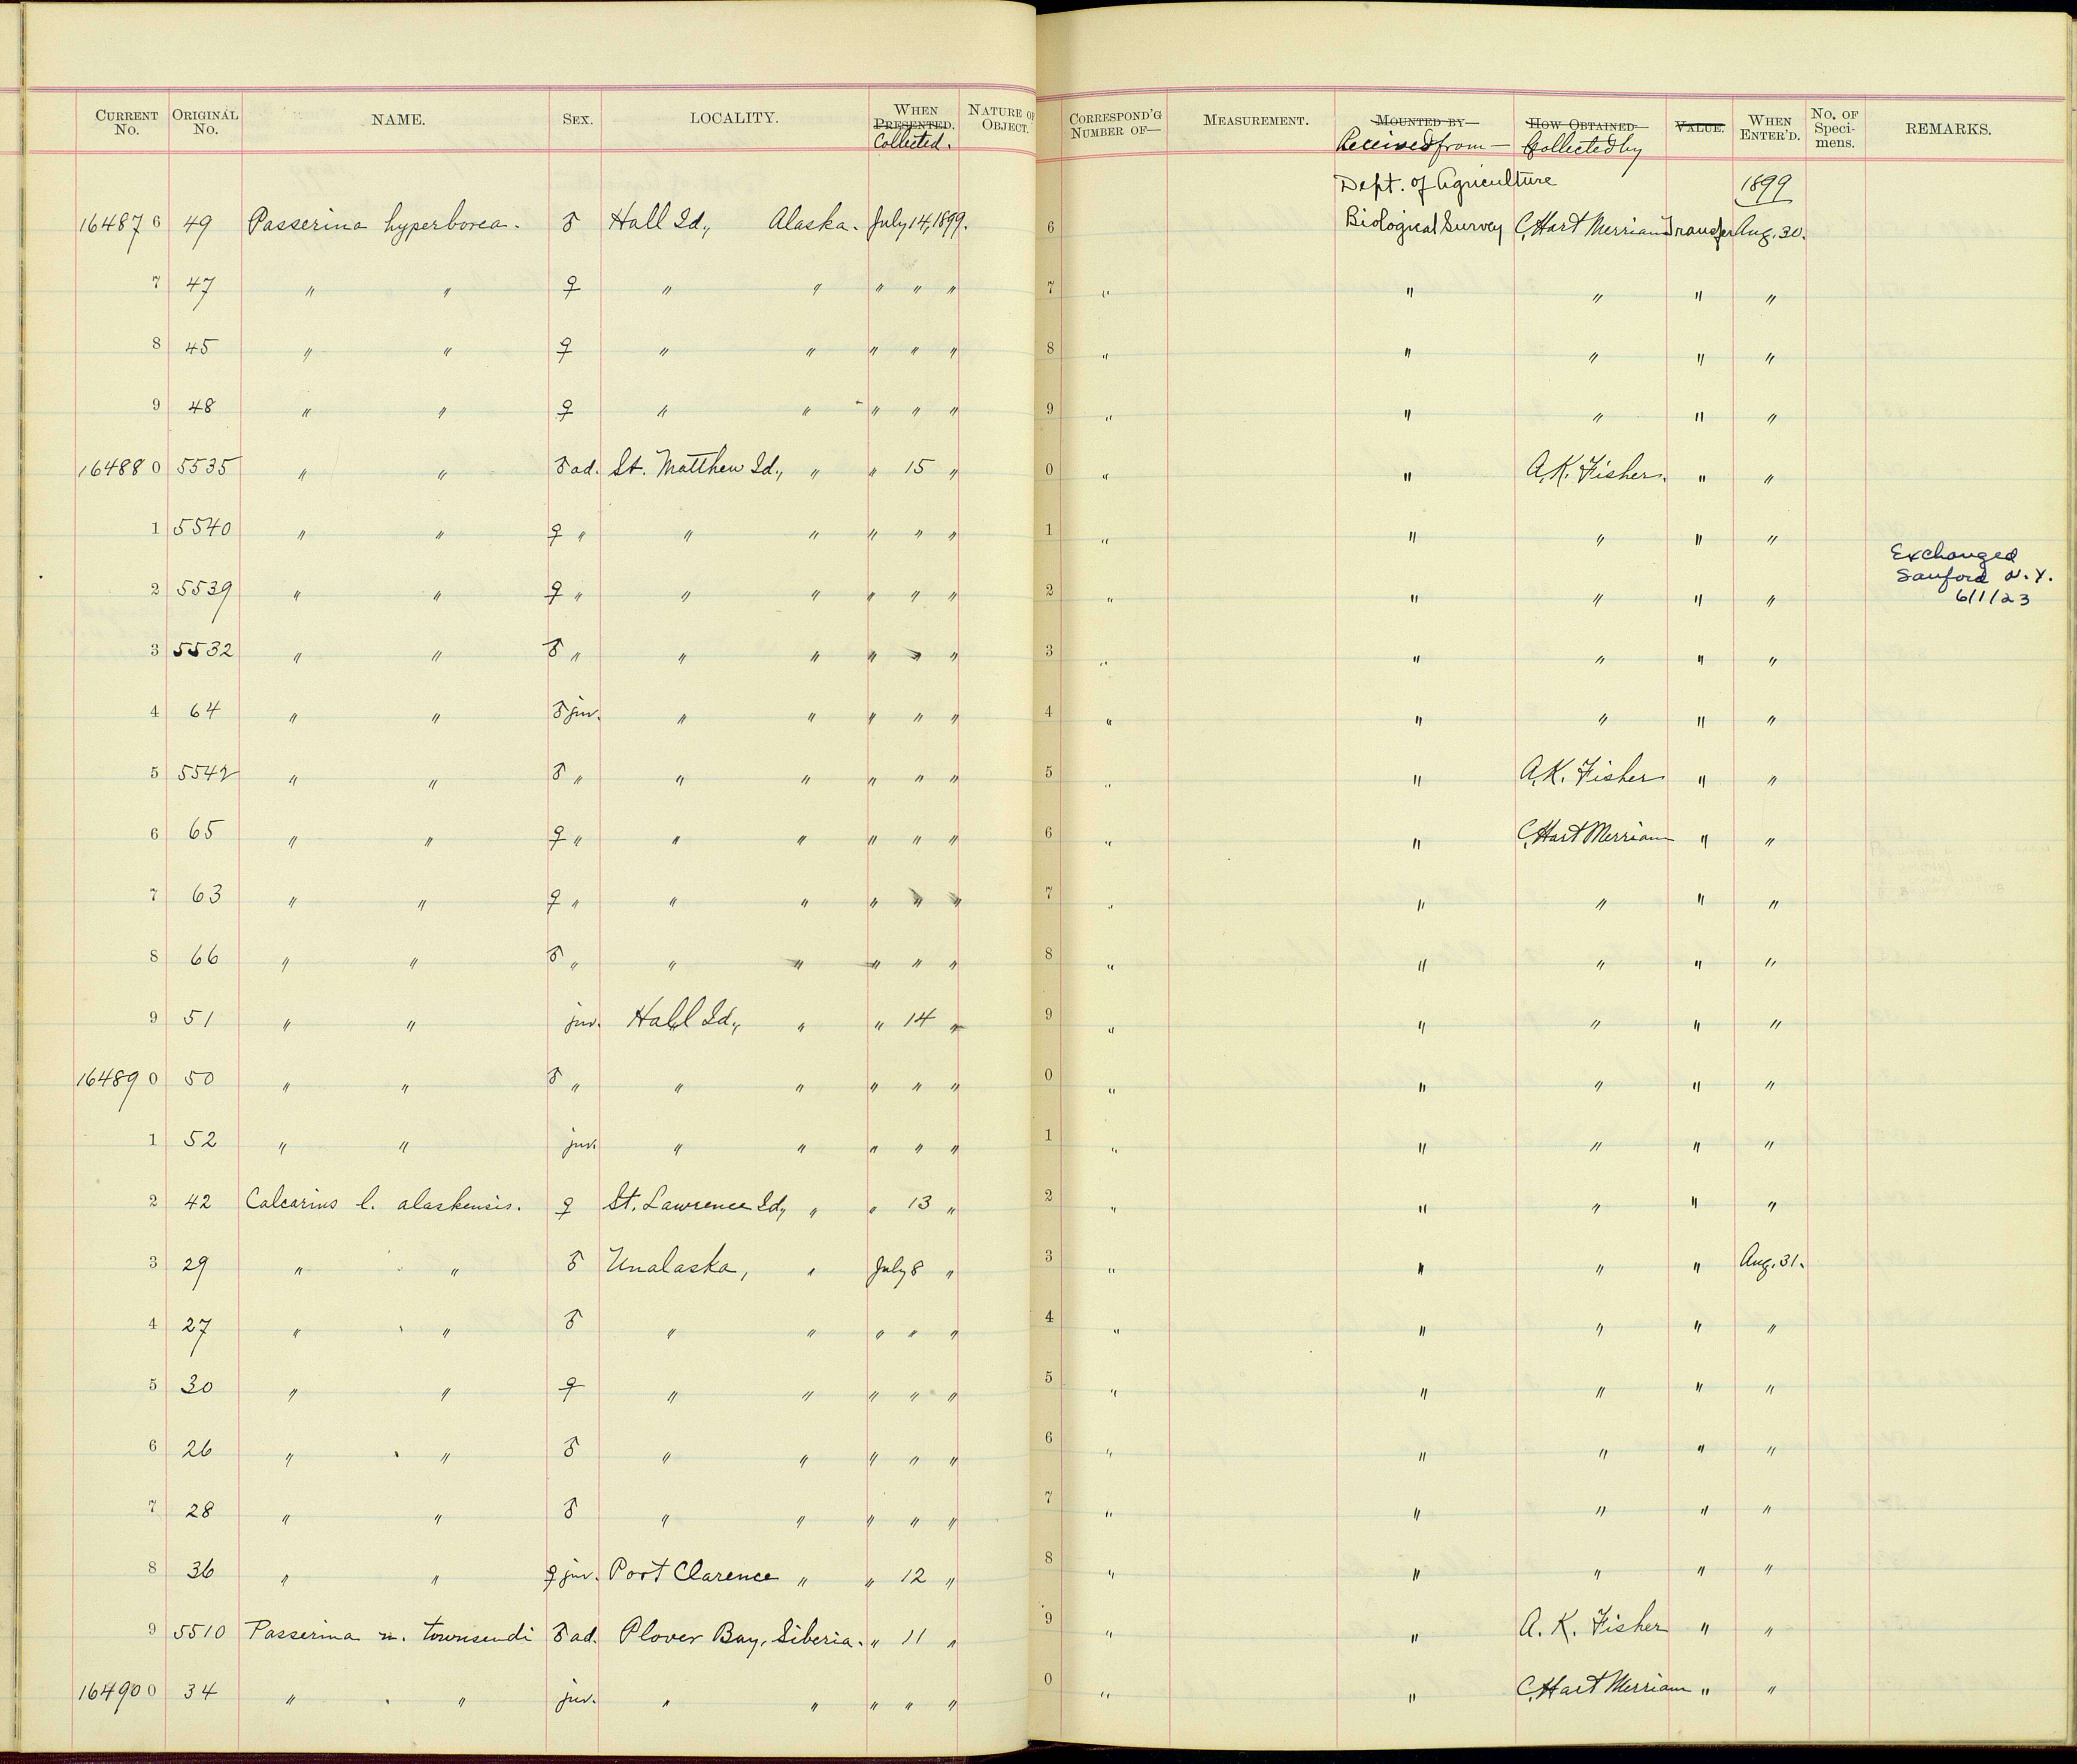 CURRENT No. ORIGINAL No. NAME. SEX. LOCALITY. WHEN PRESENTED. Collected. NATURE OF OBJECT. CORRESPOND'G NUMBER OF— MEASUREMENT. MOUNTED BY— Received from — HOW OBTAINED— Collected by VALUE. WHEN ENTER'D. No. OF Speci- mens. REMARKS.
Dept. of Agriculture 1899
164876 49 Passerina hyperborea. ♂ Hall Id., Alaska. July 14, 1899. 6 Biological Survey C. Hart Merriam Transfer Aug. 30.
7 47 " " ♀ " " " " " 7 " " " " "
8 45 " " ♀ " " " " " 8 " " " " "
9 48 " " ♀ " " " " " 9 " " " " "
164880 5535 " " ♂ ad. St. Matthew Id., " " 15 " 0 " " A. K. Fisher. " "
1 5540 " " ♀ " " " " " " 1 " " " " "
2 5539 " " ♀ " " " " " " 2 " " " " " Exchanged
Sanford N.Y.
6/1/23
3 5532 " " ♂ " " " " " " 3 " " " " "
4 64 " " ♂ juv. " " " " " 4 " " " " "
5 5542 " " ♂ " " " " " " 5 " " A. K. Fisher " "
6 65 " " ♀ " " " " " " 6 " " C. Hart Merriam " "
7 63 " " ♀ " " " " " " 7 " " " " "
8 66 " " ♂ " " " " " " 8 " " " " "
9 51 " " juv. Hall Id., " " 14 " 9 " " " " "
164890 50 " " ♂ " " " " " " 0 " " " " "
1 52 " " juv. " " " " " 1 " " " " "
2 42 Calcarius l. alaskensis. ♀ St. Lawrence Id., " " 13 " 2 " " " " "
3 29 " " ♂ Unalaska, " July 8 " 3 " " " " Aug. 31.
4 27 " " ♂ " " " " " 4 " " " " "
5 30 " " ♀ " " " " " 5 " " " " "
6 26 " " ♂ " " " " " 6 " " " " "
7 28 " " ♂ " " " " " 7 " " " " "
8 36 " " ♀ juv. Port Clarence " " 12 " 8 " " " " "
9 5510 Passerina n. townsendi ♂ ad. Plover Bay, Siberia. " 11 " 9 " " A. K. Fisher " "
164900 34 " " juv. " " " " " 0 " " C. Hart Merriam " "